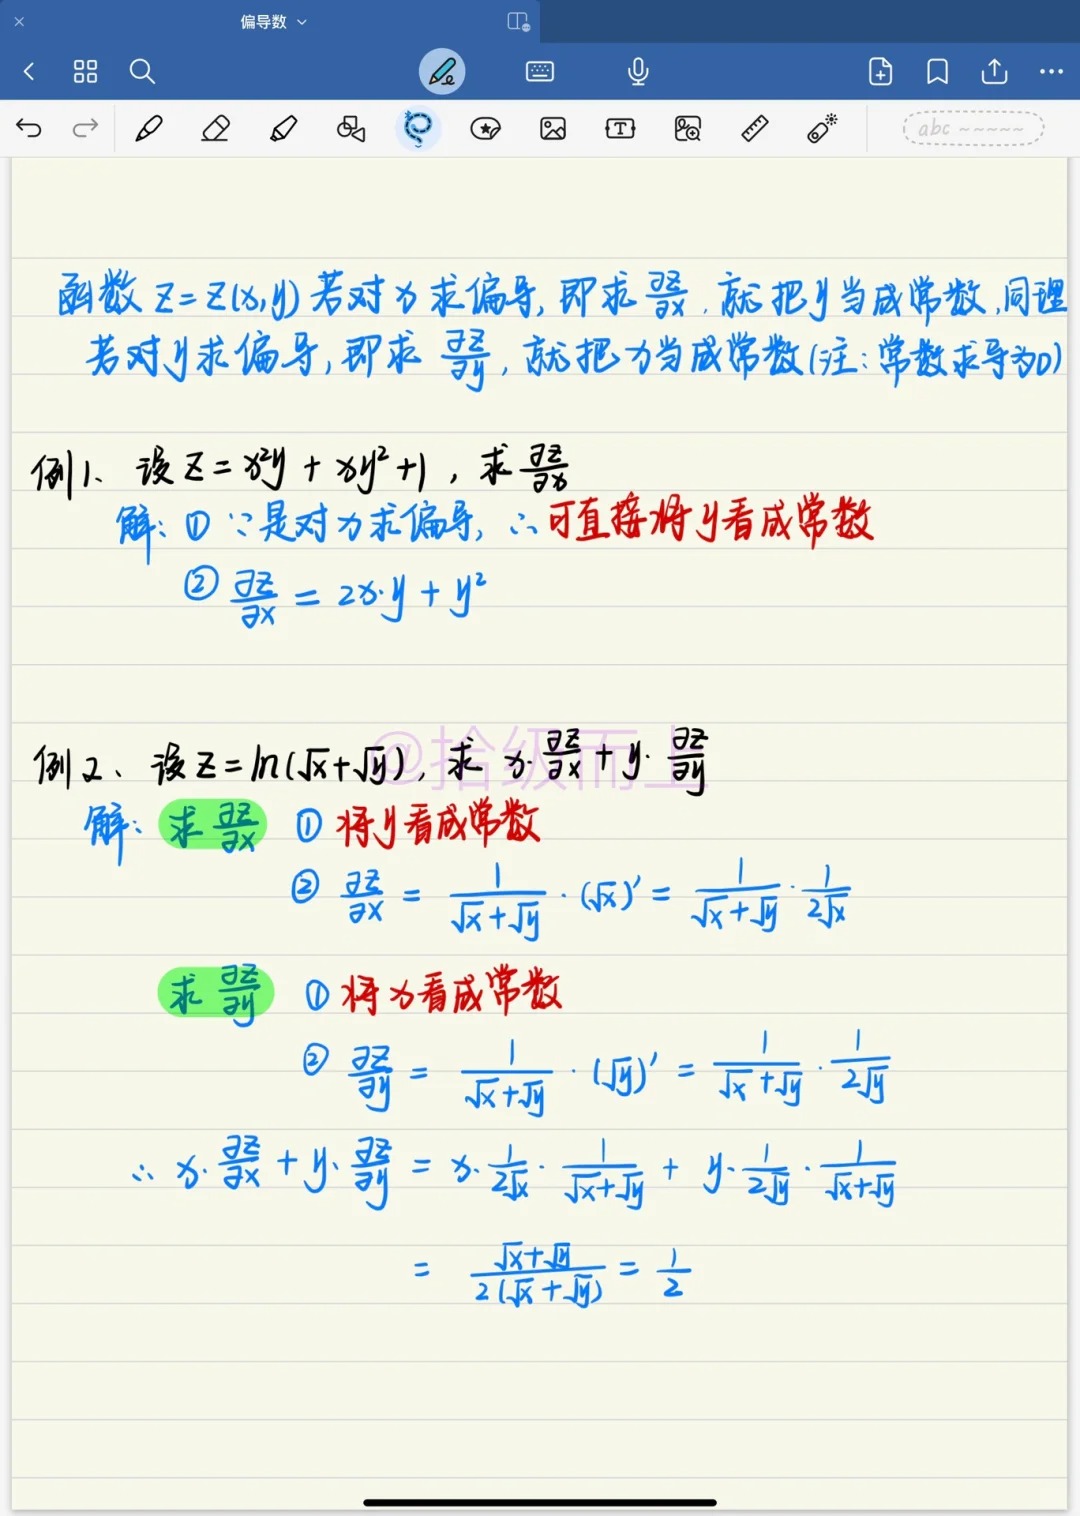 偏导数
abc ~~~~~
函数 z=z(x,y) 若对x求偏导,即求 ∂z/∂x,就把y当成常数,同理
若对y求偏导,即求 ∂z/∂y,就把x当成常数(注:常数求导为0)
例1、设 z=x²y+xy²+1,求 ∂z/∂x
解:① ∵是对x求偏导,∴可直接将y看成常数
② ∂z/∂x = 2x·y+y²
@拾级而上
例2、设 z=ln(√x+√y),求 x·∂z/∂x+y·∂z/∂y
解:求 ∂z/∂x ① 将y看成常数
② ∂z/∂x = 1/(√x+√y)·(√x)' = 1/(√x+√y)·1/(2√x)
求 ∂z/∂y ① 将x看成常数
② ∂z/∂y = 1/(√x+√y)·(√y)' = 1/(√x+√y)·1/(2√y)
∴ x·∂z/∂x+y·∂z/∂y = x·1/(2√x)·1/(√x+√y)+y·1/(2√y)·1/(√x+√y)
= (√x+√y)/(2(√x+√y)) = 1/2